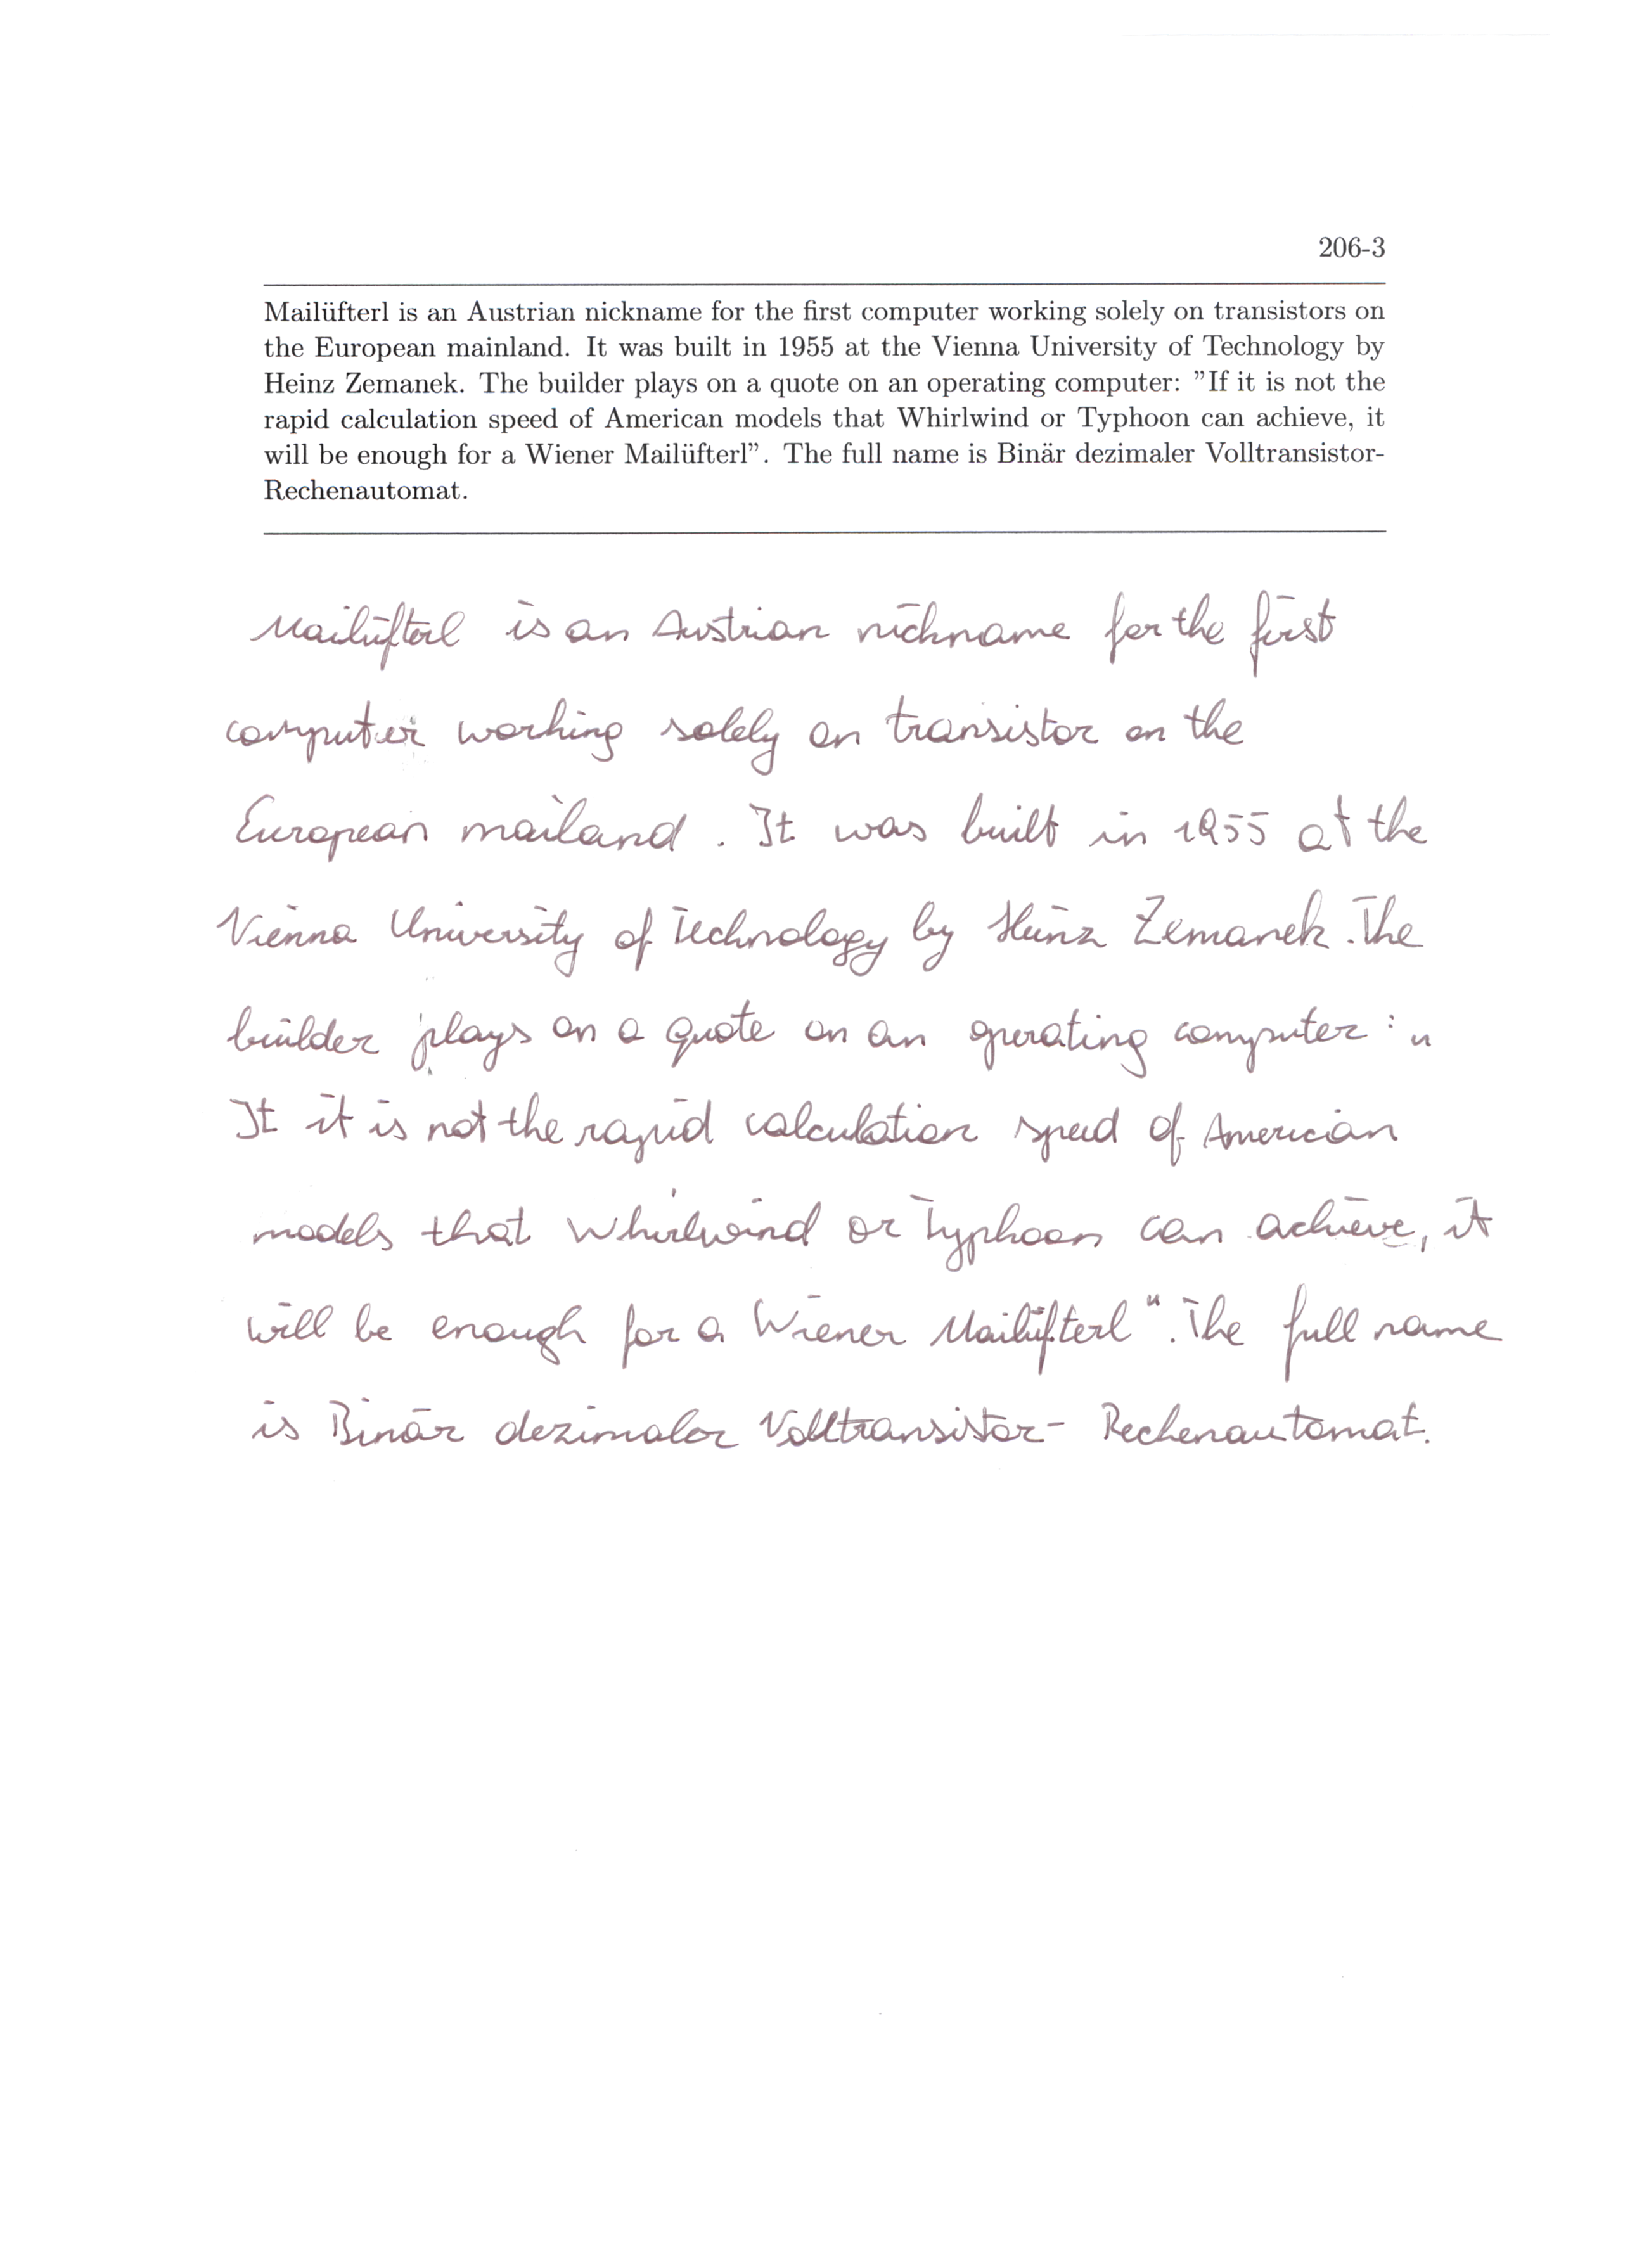 206-3
Mailüfterl is an Austrian nickname for the first computer working solely on transistors on
the European mainland. It was built in 1955 at the Vienna University of Technology by
Heinz Zemanek. The builder plays on a quote on an operating computer: ”If it is not the
rapid calculation speed of American models that Whirlwind or Typhoon can achieve, it
will be enough for a Wiener Mailüfterl”. The full name is Binär dezimaler Volltransistor-
Rechenautomat.
Mailüfterl is an Austrian nickname for the first
computer working solely on transistor on the
European mailand. It was built in 1955 at the
Vienna University of Technology by Heinz Zemanek. The
builder plays on a quote on an operating computer: "
It it is not the rapid calculation speed of American
models that Whirlwind or Typhoon can achieve, it
will be enough for a Wiener Mailüfterl". The full name
is Binär dezimaler Volltransistor- Rechenautomat.